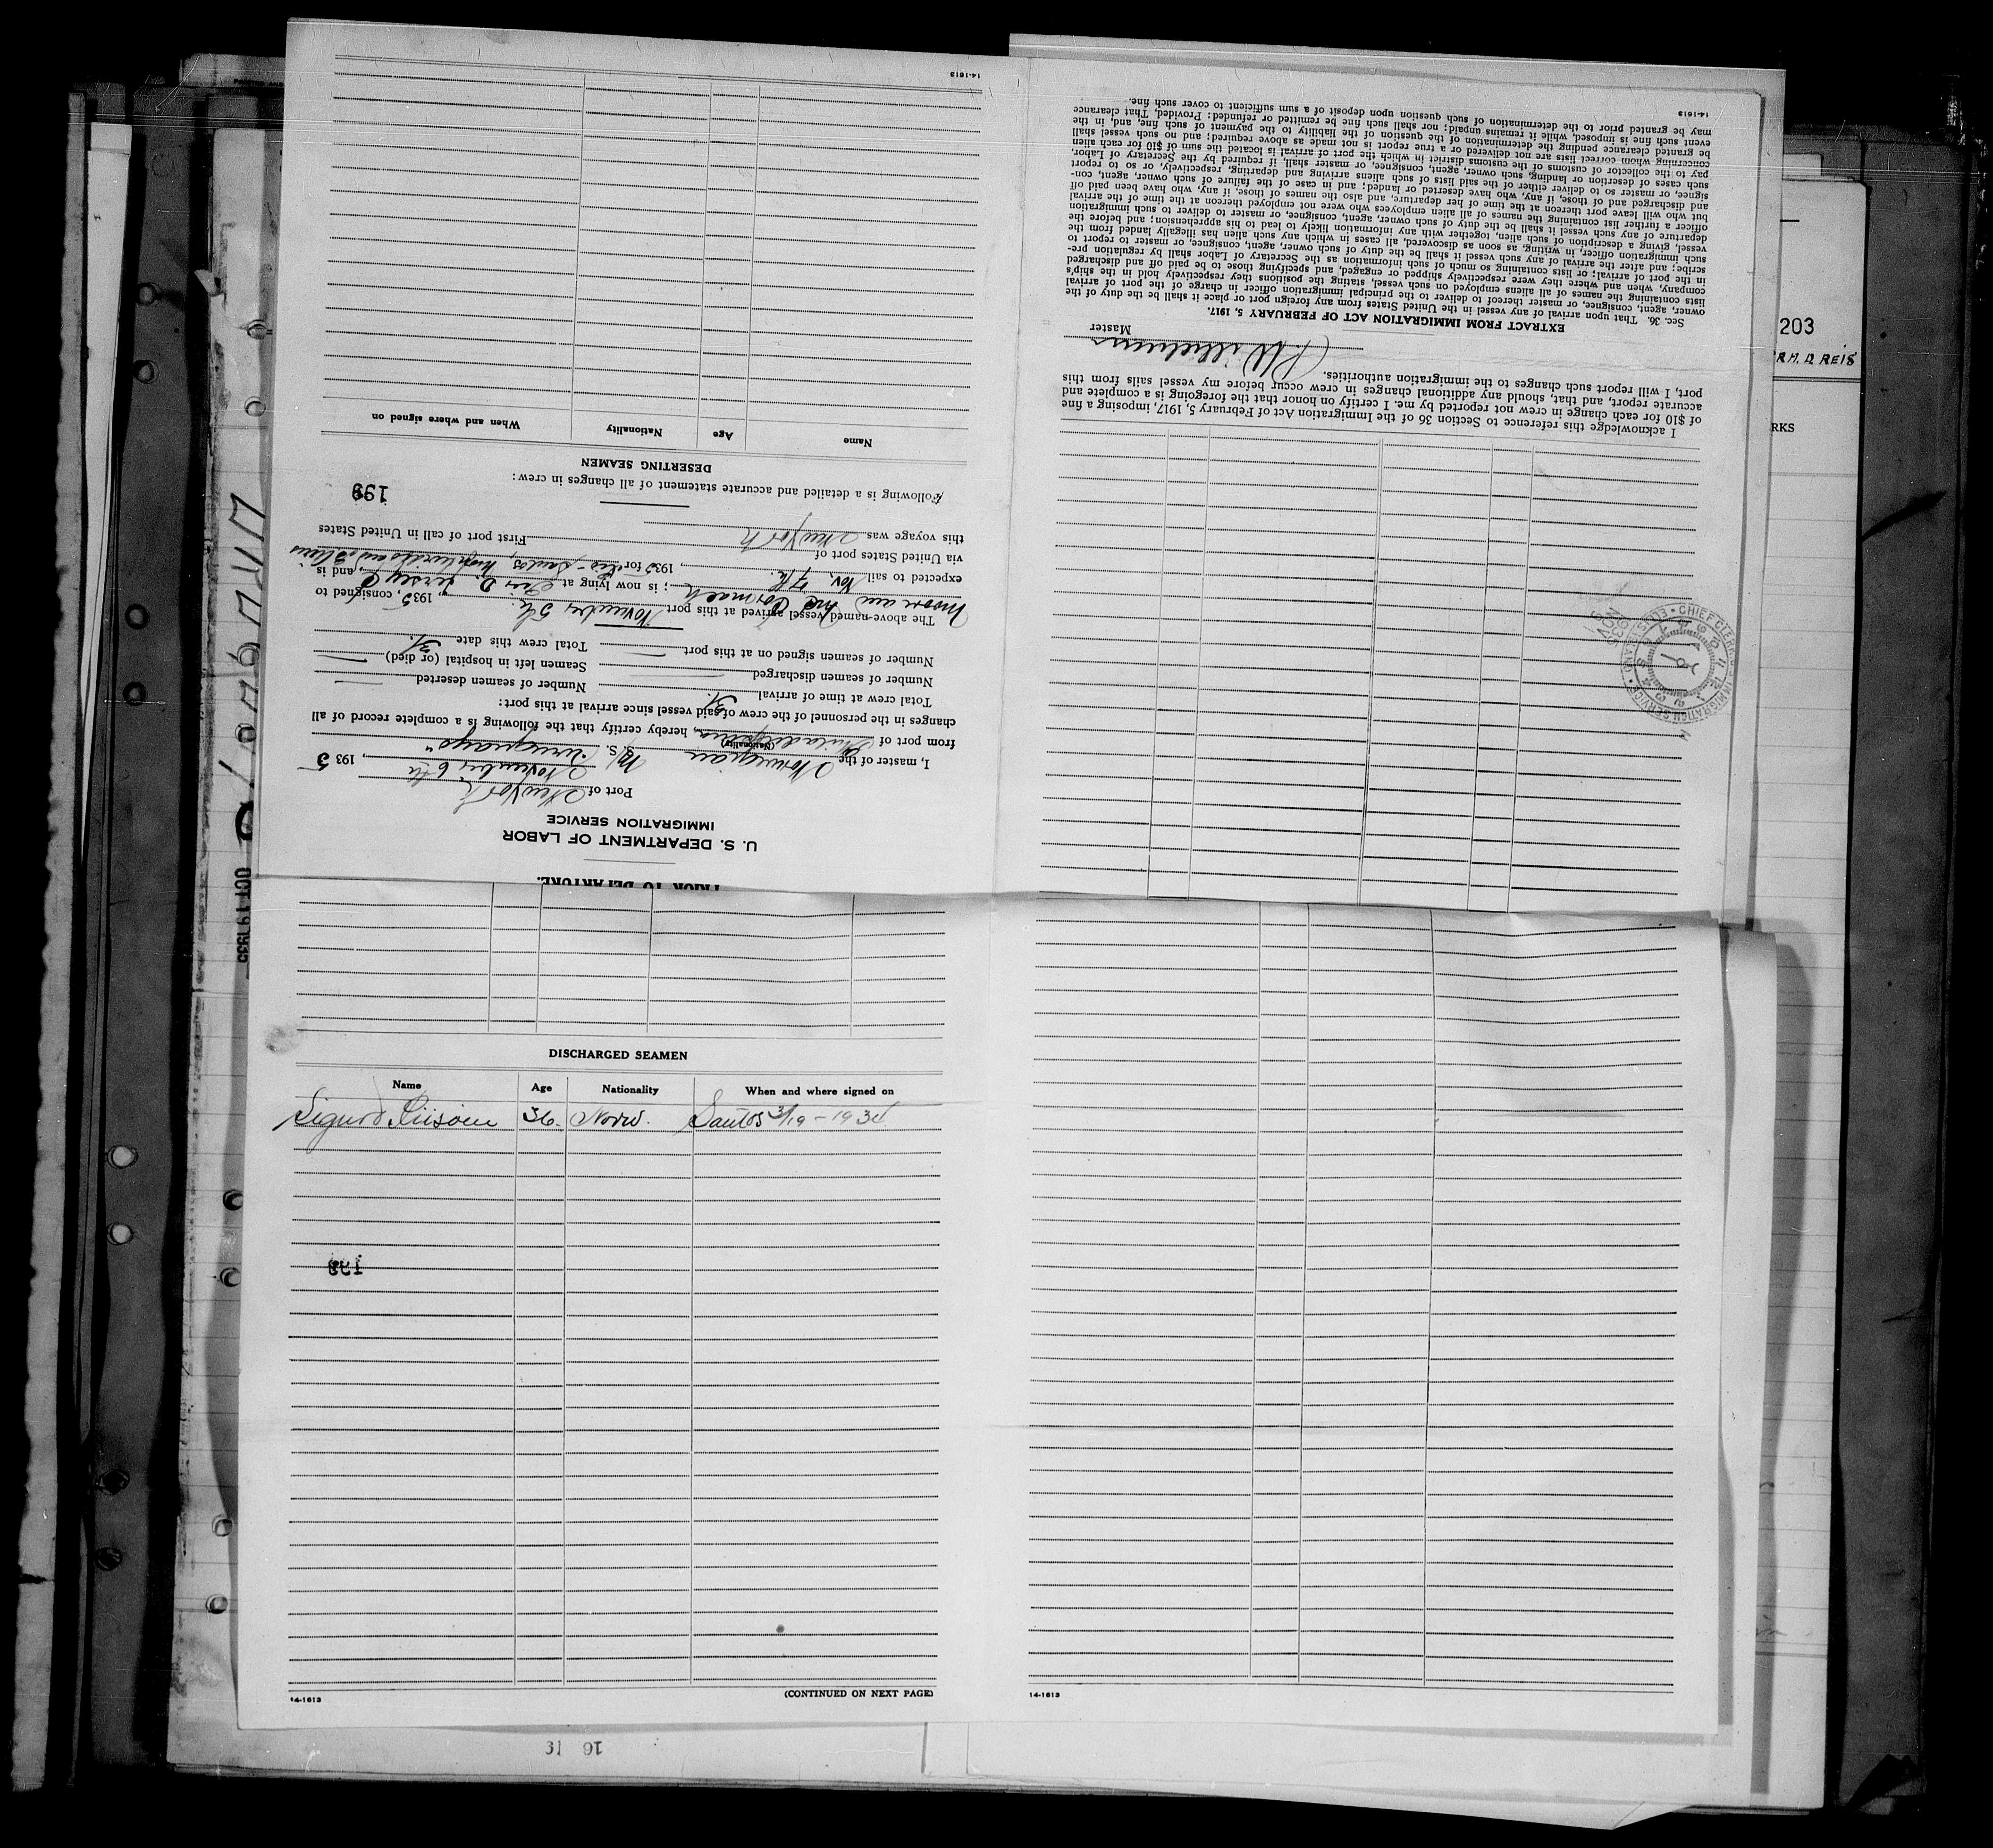 PRIOR TO DEPARTURE.
U. S. DEPARTMENT OF LABOR
IMMIGRATION SERVICE
Port of New York
November 6th, 1935
I, master of the Norwegian M/S. "Uruguayo"
(Nationality)
from port of Philadelphia, hereby certify that the following is a complete record of all
changes in the personnel of the crew of said vessel since arrival at this port:
Total crew at time of arrival 31. Number of seamen deserted —
Number of seamen discharged — Seamen left in hospital (or died) —
Number of seamen signed on at this port — Total crew this date 31.
The above-named vessel arrived at this port November 5th. 1935, consigned to
Moore and Mc Cormack; is now lying at Pier D. Jersey C, and is
expected to sail Nov. 7th., 1935 for Rio - Santos,
via United States port of
this voyage was New York First port of call in United States
Following is a detailed and accurate statement of all changes in crew:
199
DESERTING SEAMEN
Name Age Nationality When and where signed on
14-1613
I acknowledge this reference to Section 36 of the Immigration Act of February 5, 1917, imposing a fine
of $10 for each change in crew not reported by me. I certify on honor that the foregoing is a complete and
accurate report, and that, should any additional changes in crew occur before my vessel sails from this
port, I will report such changes to the immigration authorities.
Master
EXTRACT FROM IMMIGRATION ACT OF FEBRUARY 5, 1917.
Sec. 36. That upon arrival of any vessel in the United States from any foreign port or place it shall be the duty of the
owner, agent, consignee, or master thereof to deliver to the principal immigration officer in charge of the port of arrival
lists containing the names of all aliens employed on such vessel, stating the positions they respectively hold in the ship's
company, when and where they were respectively shipped or engaged, and specifying those to be paid off and discharged
in the port of arrival; or lists containing so much of such information as the Secretary of Labor shall by regulation pre-
scribe; and after the arrival of any such vessel it shall be the duty of such owner, agent, consignee, or master to report to
such immigration officer, in writing, as soon as discovered, all cases in which any such alien has illegally landed from the
vessel, giving a description of such alien, together with any information likely to lead to his apprehension; and before the
departure of any such vessel it shall be the duty of such owner, agent, consignee, or master to deliver to such immigration
officer a further list containing the names of all alien employees who were not employed thereon at the time of the arrival
but who will leave port thereon at the time of her departure, and also the names of those, if any, who have been paid off
and discharged and of those, if any, who have deserted or landed; and in case of the failure of such owner, agent, con-
signee, or master so to deliver either of the said lists of such aliens arriving and departing, respectively, or so to report
such cases of desertion or landing, such owner, agent, consignee, or master shall, if required by the Secretary of Labor,
pay to the collector of customs of the customs district in which the port of arrival is located the sum of $10 for each alien
concerning whom correct lists are not delivered or a true report is not made as above required; and no such vessel shall
be granted clearance pending the determination of the question of the liability to the payment of such fine, and, in the
event such fine is imposed, while it remains unpaid; nor shall such fine be remitted or refunded: Provided, That clearance
may be granted prior to the determination of such question upon deposit of a sum sufficient to cover such fine.
14-1613
CHIEF CLERK'S
IMMIGRATION SERVICE
203
RM. D. REIS
RKS
OCT 19 1935
DISCHARGED SEAMEN
Name Age Nationality When and where signed on
Sigurd 36. Norw. Santos 3/19 - 1934
199
14-1613
(CONTINUED ON NEXT PAGE)
14-1613
16